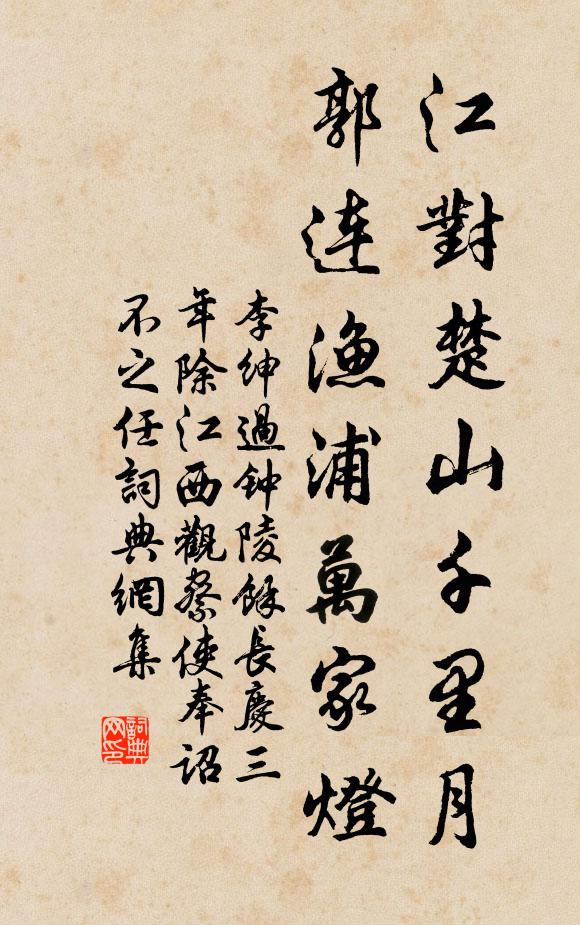 江對楚山千里月
郭連漁浦萬家燈
李紳過钟陵餘長慶三
年除江西觀察使奉詔
不之任詞典網集
詞典网印